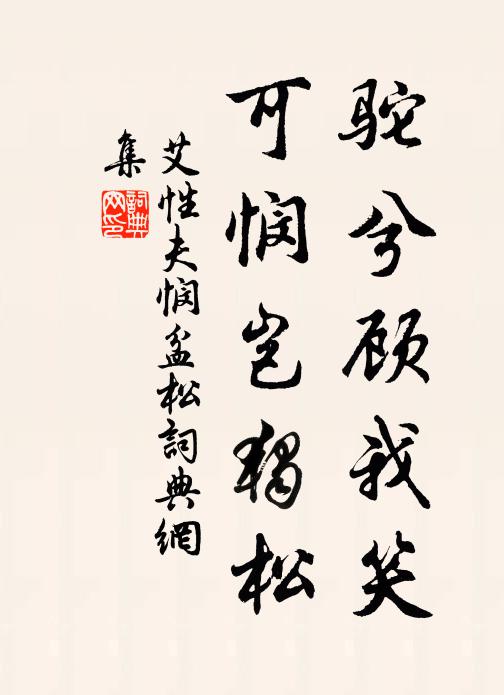 驼兮顾我笑
可悯岂独松
艾性夫悯盆松詞典網
集
詞典网印